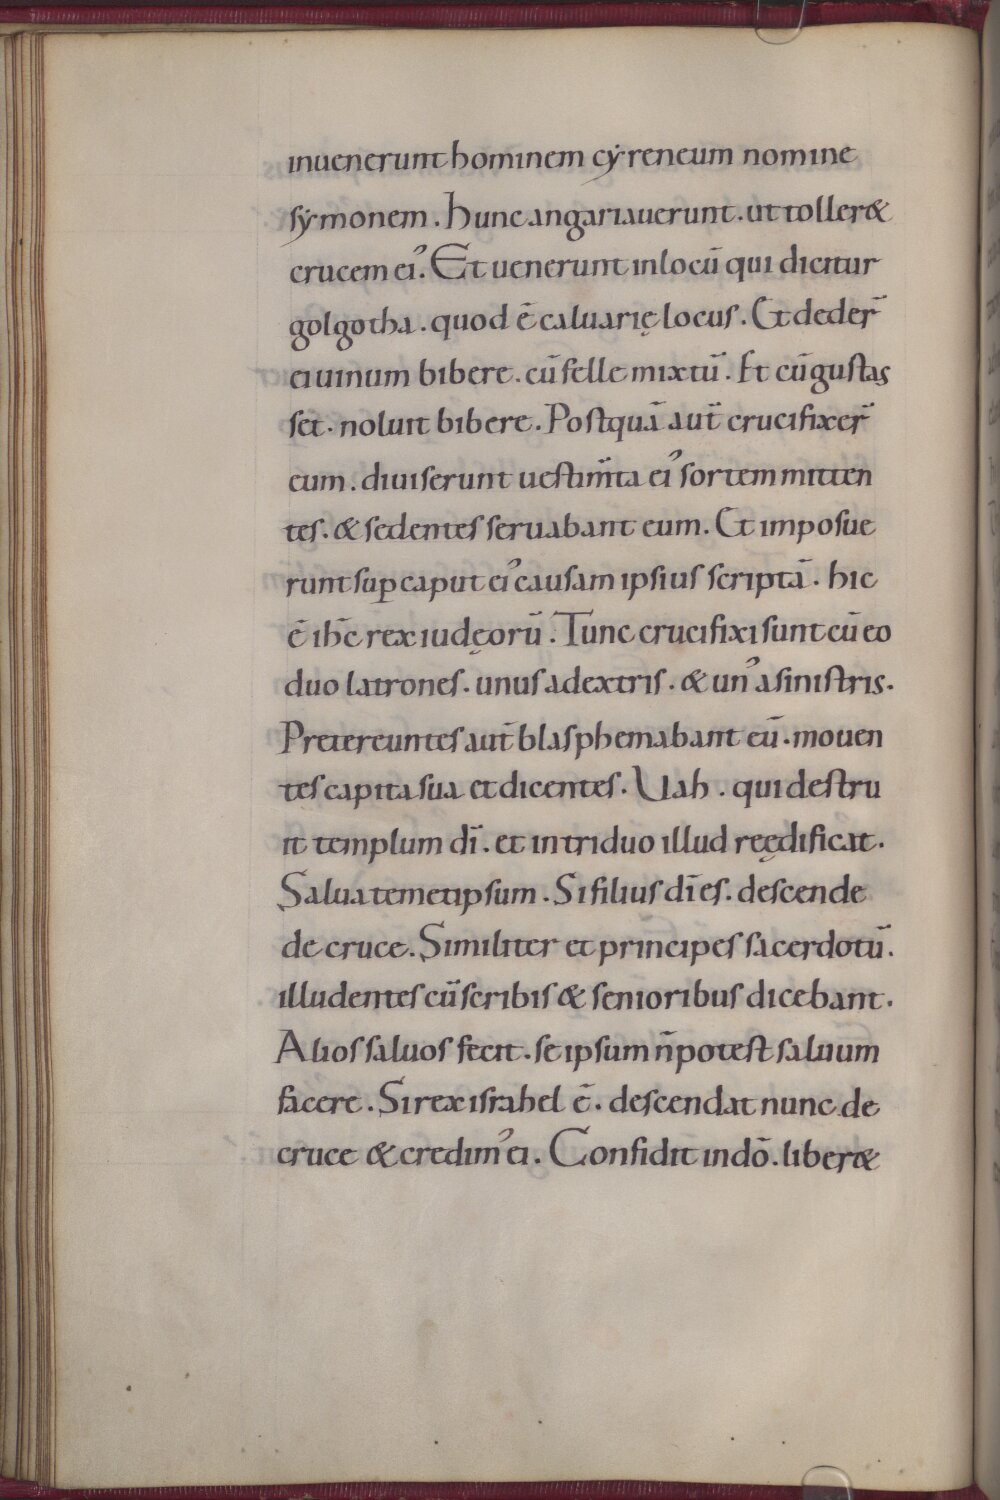 inuenerunt hominem cẏreneum nomine
sẏmonem. Hunc angariauerunt. ut toller&
crucem ei᾽. Et uenerunt in locū qui dicitur
golgotha. quod ē caluarię locus. Et dedeŕ̄
ei uinum bibere. cū felle mixtū. Et cū gustas
set. noluit bibere. Postquā aut̄ crucifixer̄
eum. diuiserunt uestim̄ta ei᾽ sortem mitten
tes. & sedentes seruabant eum. Et imposue
runt sup̱ caput ei᾽ causam ipsius scriptā. hic
ē ih̄c rex iudęorū. Tunc crucifixi sunt cū eo
duo latrones. unus a dextris. & un᾽ a sinistris.
Pretereuntes aut̄ blasphemabant eū. mouen
tes capita sua et dicentes. Uah. qui destru
it templum dī. et in triduo illud reędificat.
Salua temetipsum. Si filius dī es. descende
de cruce. Similiter et principes sacerdotū.
illudentes cū scribis & senioribus dicebant.
Alios saluos fecit. se ipsum n̄ potest saluum
facere. Si rex israhel ē. descendat nunc de
cruce & credim᾽ ei. Confidit in dō. liber&